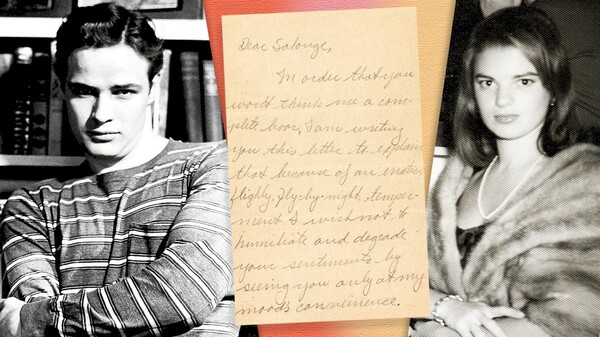 Dear Solange,
In order that you
won't think me a com-
plete boor, I am writing
you this letter to explain
that because of an erratic
flighly, fly-by-night, temper-
ment I wish not to
humiliate and degrade
your sentiments by
seeing you only at my
mood's convenience.